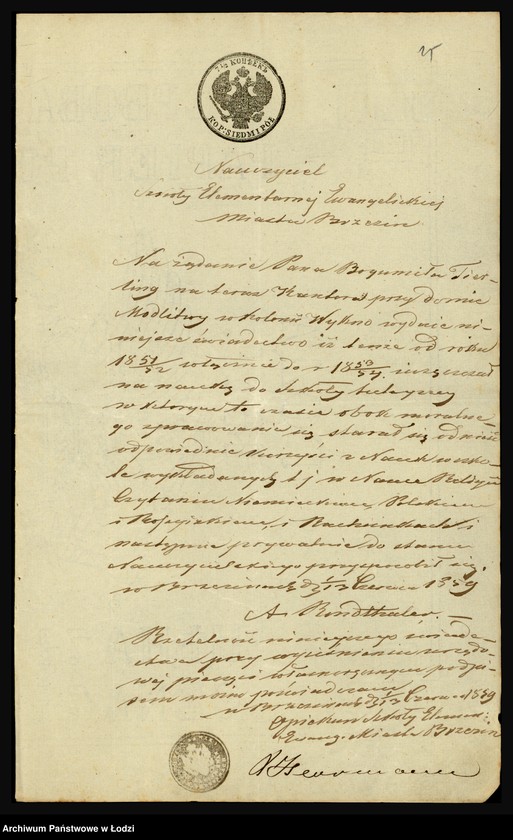 15
7½ КОПѢЕКЪ
KOP. SIEDM I PÓŁ
Nauczyciel
Szkoły Elementarnej Ewangelickiej
Miasta Brzezin
Na żądanie Pana Bogumiła Ties-
ling na teraz Kantora przy domie
Modlitwy w Kolonii Wykno wydaie ni-
niejsze świadectwo iż tenże od roku
18 51/52 włącznie do r 18 53/54 uczęszczał
na naukę do Szkoły tutejszey
w którym to czasie obok moralne-
go sprawowania się starał się odnieść
odpowiednie korzyści z Nauk w szko-
le wykładanych t j w Nauce Religii
Czytaniu Niemieckiem, Polskiem
i Rossyiskiem, i Rachunkach i
następnie prywatnie do stanu
Nauczycielskiego przysposobił się.
w Brzezinach d 1/13 Czerwca 1859
A. Rindthaler.
Rzetelność niniejszego świade-
ctwa przy wyciśnieniu urzędo-
wej pieczęci własnoręcznym podpi-
sem moim poświadczam
w Brzezinach d 1/13 Czerwca 1859
Opiekun Szkoły Elemen:
Ewang. Miasta Brzezin
Archiwum Państwowe w Łodzi